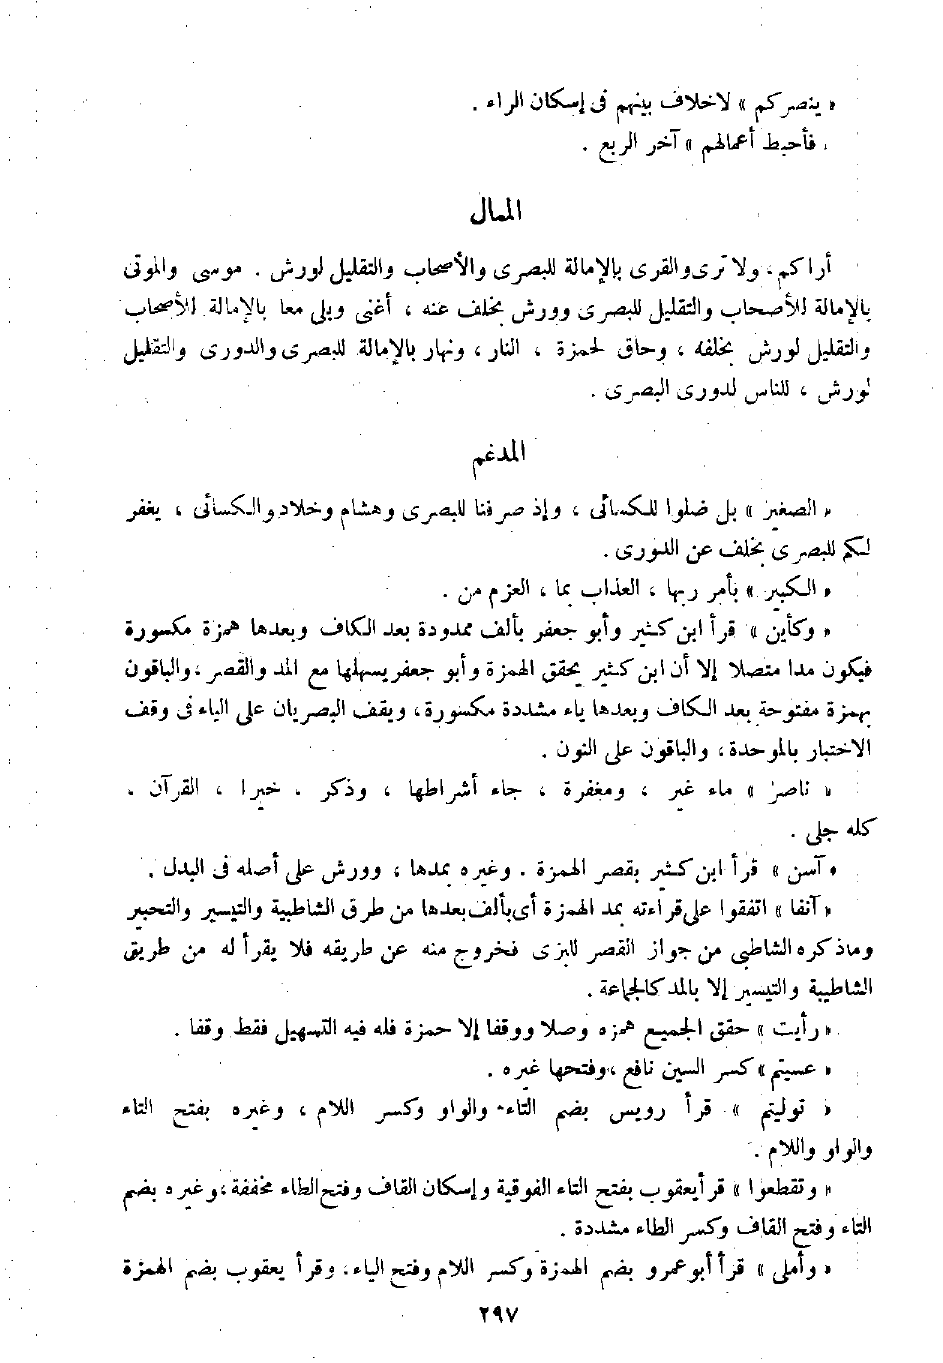 « ينصركم » لاخلاف بينهم فى إسكان الراء .
« فأحبط أعمالهم » آخر الربع .
الممال
أراكم، ولا ترى والقرى بالإمالة للبصرى والأصحاب والتقليل لورش . موسى والموتى
بالإمالة للأصحاب والتقليل للبصرى وورش بخلف عنه ، أغنى وبلى معا بالإمالة للأصحاب
والتقليل لورش بخلفه ، وحاق لحمزة ، النار ، ونهار بالإمالة للبصرى والدورى والتقليل
لورش ، للناس لدورى البصرى .
المدغم
« الصغير » بل ضلوا للكسائى ، وإذ صرفنا للبصرى وهشام وخلاد والكسائى ، يغفر
لكم للبصرى بخلف عن الدورى .
« الكبير » بأمر ربها ، العذاب بما ، العزم من .
« وكأين » قرأ ابن كثير وأبو جعفر بألف ممدودة بعد الكاف وبعدها همزة مكسورة
فيكون مدا متصلا إلا أن ابن كثير يحقق الهمزة وأبو جعفر يسهلها مع المد والقصر ، والباقون
بهمزة مفتوحة بعد الكاف وبعدها ياء مشددة مكسورة ، ويقف البصريان على الياء فى وقف
الاختبار بالموحدة، والباقون على النون .
« ناصر » ماء غير ، ومغفرة ، جاء أشراطها ، وذكر . خيرا ، القرآن .
كله جلى .
« آسن » قرأ ابن كثير بقصر الهمزة . وغيره بمدها ، وورش على أصله فى البدل .
« آنفا » اتفقوا على قراءته بمد الهمزة أى بألف بعدها من طرق الشاطبية والتيسير والتحبير
وماذكره الشاطبى من جواز القصر للبزى فخروج منه عن طريقه فلا يقرأ له من طريق
الشاطبية والتيسير إلا بالمد كالجماعة .
« رأيت » حقق الجميع همزه وصلا ووقفا إلا حمزة فله فيه التسهيل فقط وقفا .
« عسيتم » كسر السين نافع ، وفتحها غيره .
« توليتم » قرأ رويس بضم التاء والواو وكسر اللام ، وغيره بفتح التاء
والواو واللام .
« وتقطعوا » قرأ يعقوب بفتح التاء الفوقية وإسكان القاف وفتح الطاء مخففة ، وغيره بضم
التاء وفتح القاف وكسر الطاء مشددة .
« وأملى » قرأ أبو عمرو بضم الهمزة وكسر اللام وفتح الياء ، وقرأ يعقوب بضم الهمزة
٢٩٧